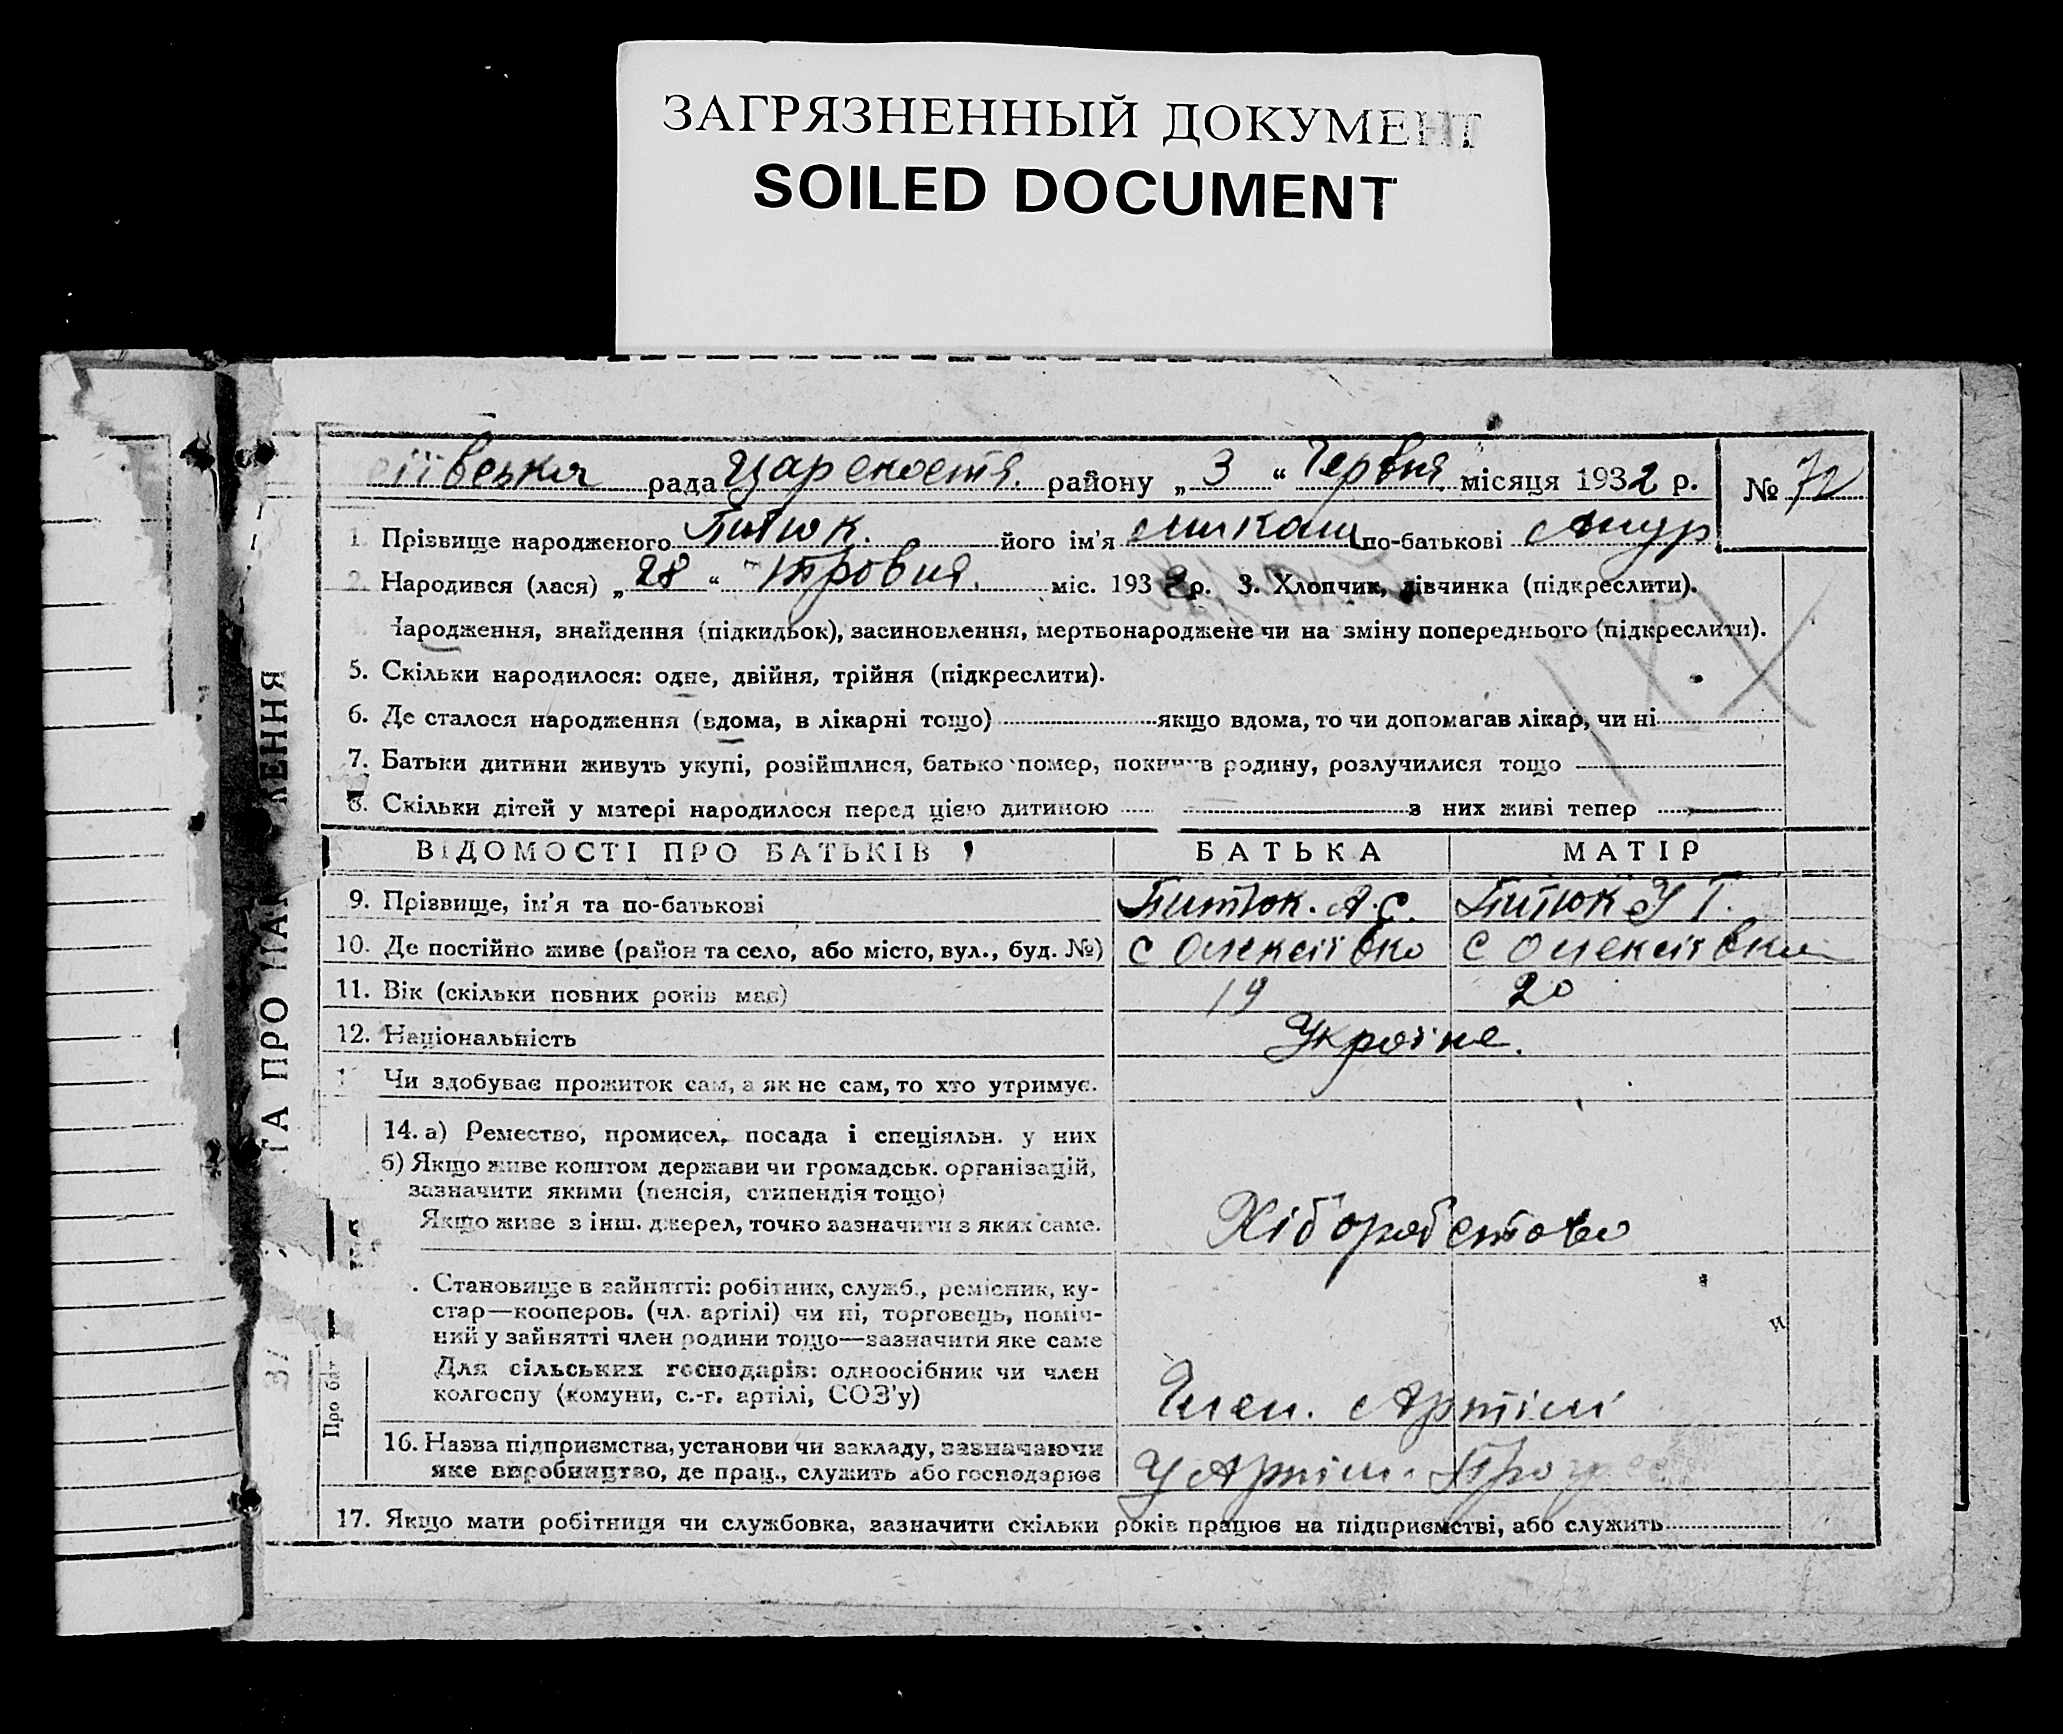 ЗАГРЯЗНЕННЫЙ ДОКУМЕНТ
SOILED DOCUMENT
ТА ПРО
ЛЕННЯ
Про бат
ІЇвська рада району „ 3 “ Червня місяця 1932 р. № 72
1. Прізвище народженого Питюк. його ім'я по-батькові
2. Народився (лася) „ 28 “ міс. 193 р. 3. Хлопчик, дівчинка (підкреслити).
Народження, знайдення (підкидьок), засиновлення, мертвонароджене чи на зміну попереднього (підкреслити).
5. Скільки народилося: одне, двійня, трійня (підкреслити).
6. Де сталося народження (вдома, в лікарні тощо) якщо вдома, то чи допомагав лікар, чи ні
7. Батьки дитини живуть укупі, розійшлися, батько помер, покинув родину, розлучилися тощо
8. Скільки дітей у матері народилося перед цією дитиною з них живі тепер
ВІДОМОСТІ ПРО БАТЬКІВ БАТЬКА МАТІР
9. Прізвище, ім'я та по-батькові Питюк. А. С. Питюк У Г.
10. Де постійно живе (район та село, або місто, вул., буд. №) с Олексіївка с Олексіївка
11. Вік (скільки повних років має) 19 20
12. Національність Україне.
Чи здобуває прожиток сам, а як не сам, то хто утримує.
14. а) Ремество, промисел, посада і спеціяльн. у них
б) Якщо живе коштом держави чи громадськ. організацій,
зазначити якими (пенсія, стипендія тощо)
Якщо живе з інш. джерел, точно зазначити з яких саме.
Становище в зайнятті: робітник, служб., ремісник, ку-
стар—кооперов. (чл. артілі) чи ні, торговець, поміч-
ний у зайнятті член родини тощо—зазначити яке саме
Для сільських господарів: одноосібник чи член
колгоспу (комуни, с.-г. артілі, СОЗ'у) Член. Артілі
16. Назва підприємства, установи чи закладу, зазначаючи
яке виробництво, де прац., служить або господарює У Артілі
17. Якщо мати робітниця чи службовка, зазначити скільки років працює на підприємстві, або служить